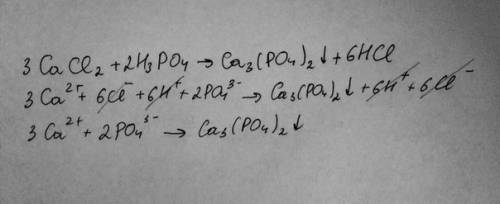 3 CaCl₂ + 2H₃PO₄ → Ca₃(PO₄)₂↓ + 6HCl
3 Ca²⁺ + 6Cl⁻ + 6H⁺ + 2PO₄³⁻ → Ca₃(PO₄)₂↓ + 6H⁺ + 6Cl⁻
3 Ca²⁺ + 2PO₄³⁻ → Ca₃(PO₄)₂↓